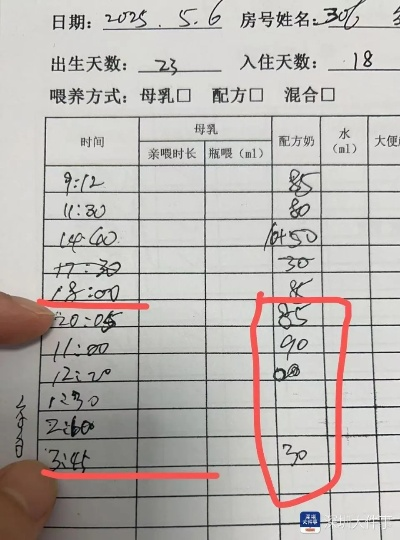 日期: 2025.5.6 房号姓名: 308
出生天数: 23 入住天数: 18
喂养方式: 母乳□ 配方□ 混合□
时间 母乳 配方奶 水(ml) 大便
亲喂时长 瓶喂(ml)
9:12 85
11:30 80
14:00 10+50
17:30 30
18:00
20:05 85
11:00 90
12:20
1:30
2:60
3:45 30
深圳大件事
深圳大件事